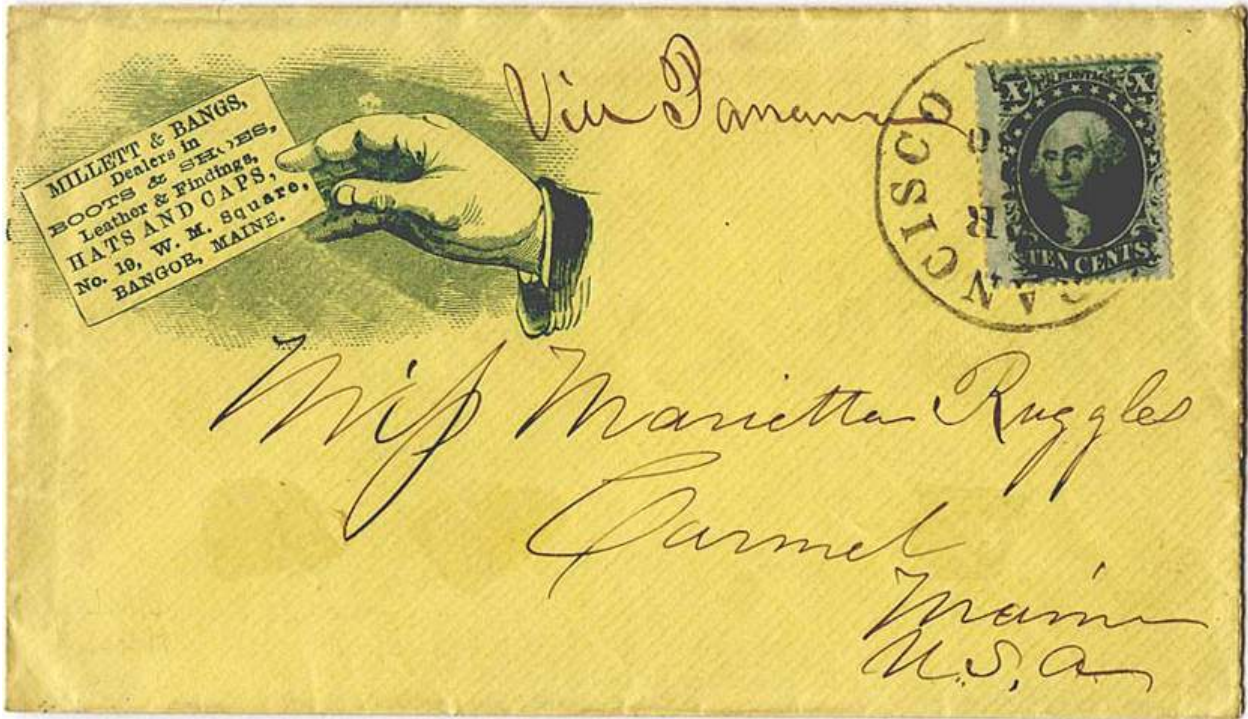 MILLETT & BANGS,
Dealers in
BOOTS & SHOES,
Leather & Findings,
HATS AND CAPS,
No. 19, W. M. Square,
BANGOR, MAINE.
Via Panama
ANCISCO
R
X U.S. POSTAGE X
TEN CENTS
Miss Marietta Ruggles
Carmel
Maine
U.S.A